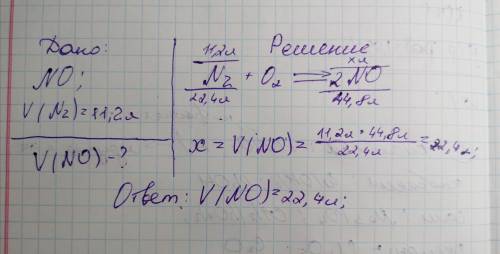 Дано:
NO;
V(N₂)=11,2л
V(NO)-?
Решение
11,2л xл
N₂ + O₂ ⇌ 2NO
22,4л 44,8л
x = V(NO) = 11,2л · 44,8л / 22,4л = 22,4л;
Ответ: V(NO)=22,4л;